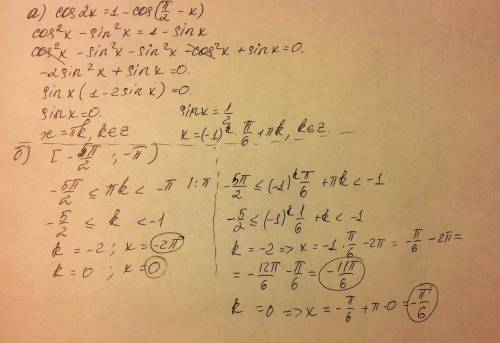 а) cos2x = 1 - cos(π/2 - x)
cos²x - sin²x = 1 - sinx
cos²x - sin²x - sin²x - cos²x + sinx = 0.
-2sin²x + sinx = 0.
sinx(1 - 2sinx) = 0.
sinx = 0. sinx = 1/2
x = πk, k∈z x = (-1)^k · π/6 + πk, k∈z.
б) [-5π/2 ; -π)
-5π/2 ≤ πk < -π |:π
-5/2 ≤ k < -1
k = -2; x = -2π
k = 0; x = 0.
-5π/2 ≤ (-1)^k π/6 + πk < -1
-5/2 ≤ (-1)^k 1/6 + k < -1
k = -2 => x = -1 · π/6 - 2π = -π/6 - 2π =
= -12π/6 - π/6 = -11π/6
k = 0 => x = -π/6 + π·0 = -π/6